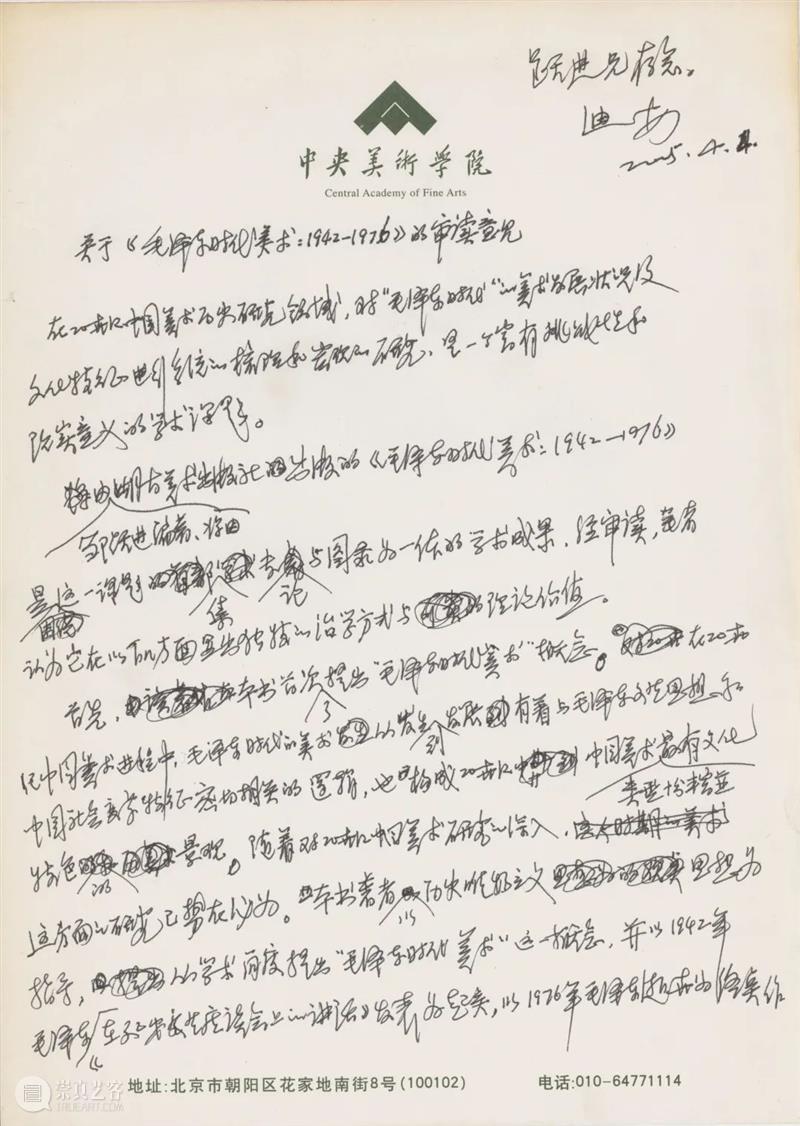 跃进兄存念。
迪安
2005.4.
中央美術学院
Central Academy of Fine Arts
关于《毛泽东时代美术:1942-1976》的审读意见
在20世纪中国美术历史研究领域,对“毛泽东时代”的美术发展状况及
文化特征进行系统的梳理和客观的研究,是一个富有挑战性和
现实意义的学术课题。
将由湖南美术出版社出版的《毛泽东时代美术:1942—1976》
邹跃进编著、将由
是这一课题的 专 与图录为一体的学术成果,经审读,笔者
集 论
认为它在以下几方面显出独特的治学方式与 的理论价值。
首先,本书首次提出“毛泽东时代美术”概念。在20世
了
纪中国美术进程中,毛泽东时代的美术的发生 发展 有着与毛泽东文艺思想和
到
中国社会变革特征密切相关的逻辑,也构成20世纪 中国美术最有文化
类型
特色 景观。随着对20世纪中国美术研究的深入,
的
这方面的研究已势在必为。本书著者 历史唯物主义 思想为
以
指导,的学术角度提出“毛泽东时代美术”这一概念,并以1942年
毛泽东在延安文艺座谈会上的讲话》发表为起点,以1976年毛泽东逝世为终点作
《
地址:北京市朝阳区花家地南街8号(100102)
电话:010-64771114
崇真艺客
TRUEART.COM